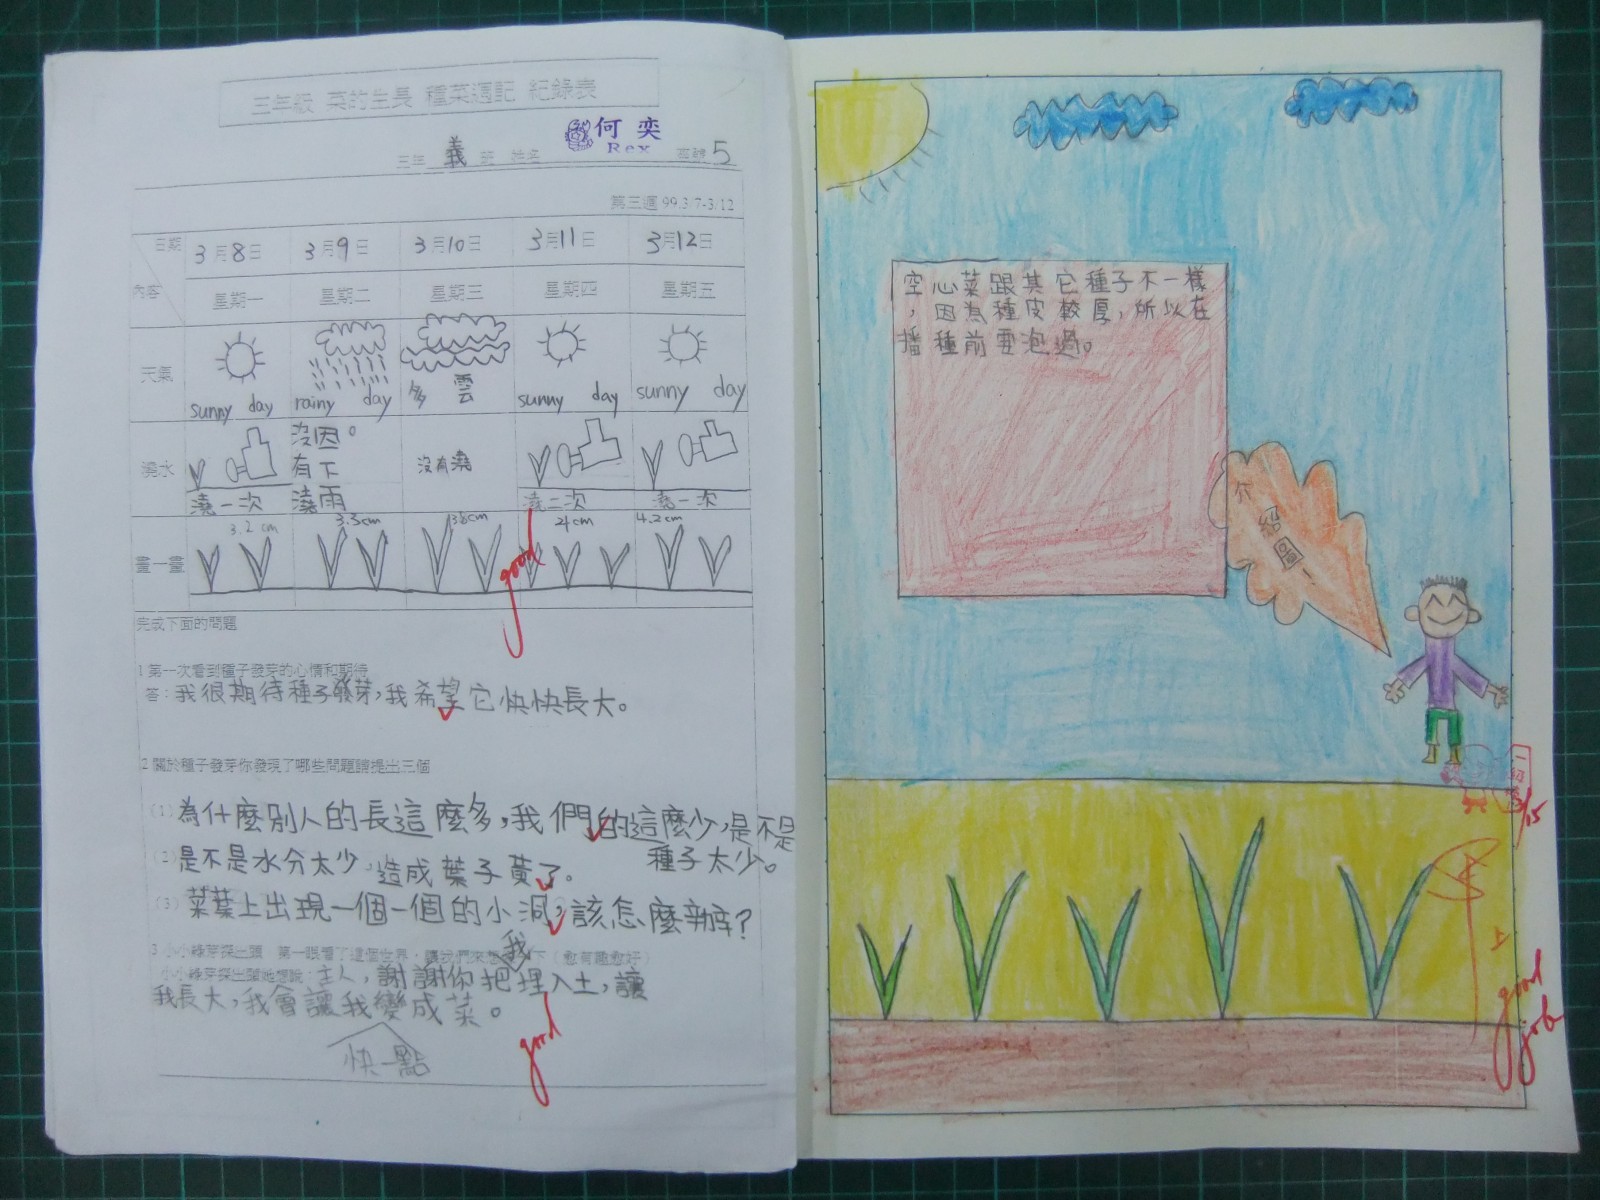 三年級 菜的生長 種菜週記 紀錄表
何奕
Rex
三年 義 班 姓名 座號 5
第三週 99.3/7-3/12
日期 3月8日 3月9日 3月10日 3月11日 3月12日
內容 星期一 星期二 星期三 星期四 星期五
天氣 sunny day rainy day 多雲 sunny day sunny day
澆水
沒因。
有下
澆雨
沒有澆
澆一次 澆二次 澆一次
畫一畫 3.2cm 3.5cm 3.8cm 4cm 4.2cm
good
完成下面的問題
1 第一次看到種子發芽的心情和期待
答：我很期待種子發芽，我希望它快快長大。
2 關於種子發芽你發現了哪些問題請提出三個
(1) 為什麼別人的長這麼多，我們的這麼少，是不是
種子太少。
(2) 是不是水分太少，造成葉子黃了。
(3) 菜葉上出現一個一個的小洞，該怎麼辦？
3 小小綠芽探出頭 第一眼看了這個世界，讓我們來想 下（愈有趣愈好）
小小綠芽探出頭她想說：主人，謝謝你把我埋入土，讓
我長大，我會讓我變成菜。
快一點
good
空心菜跟其它種子不一樣
，因為種皮較厚，所以在
播種前要泡過。
介紹圖！
3/15
上
good
job